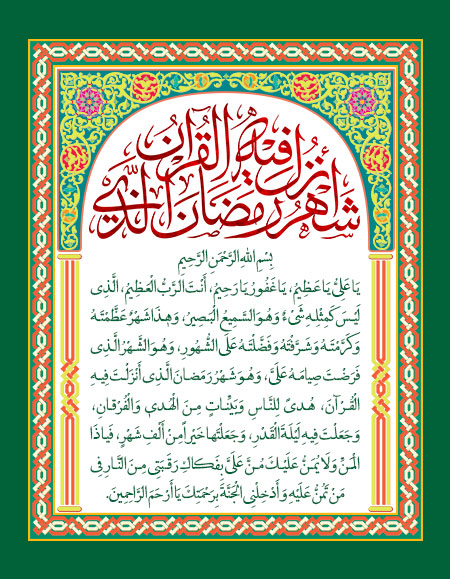 شهر رمضان الذي أنزل فيه القرآن
بِسْمِ اللهِ الرَّحْمٰنِ الرَّحِيمِ
يَا عَلِيُّ يَا عَظِيمُ، يَا غَفُورُ يَا رَحِيمُ، أَنْتَ الرَّبُّ الْعَظِيمُ، الَّذِى
لَيْسَ كَمِثْلِهِ شَىْءٌ وَهُوَ السَّمِيعُ الْبَصِيرُ، وَهٰذَا شَهْرٌ عَظَّمْتَهُ
وَكَرَّمْتَهُ وَشَرَّفْتَهُ وَفَضَّلْتَهُ عَلَى الشُّهُورِ، وَهُوَ الشَّهْرُ الَّذِى
فَرَضْتَ صِيَامَهُ عَلَىَّ، وَهُوَ شَهْرُ رَمَضَانَ الَّذِى أَنْزَلْتَ فِيهِ
الْقُرْآنَ، هُدىً لِلنَّاسِ وَبَيِّنَاتٍ مِنَ الْهُدىٰ وَالْفُرْقَانِ،
وَجَعَلْتَ فِيهِ لَيْلَةَ الْقَدْرِ، وَجَعَلْتَها خَيْراً مِنْ أَلْفِ شَهْرٍ، فَيَاذَا
الْمَنِّ وَلَا يُمَنُّ عَلَيْكَ مُنَّ عَلَىَّ بِفَكَاكِ رَقَبَتِى مِنَ النَّارِ فِى
مَنْ تَمُنُّ عَلَيْهِ وَأَدْخِلْنِى الْجَنَّةَ بِرَحْمَتِكَ يَا أَرْحَمَ الرَّاحِمِينَ.